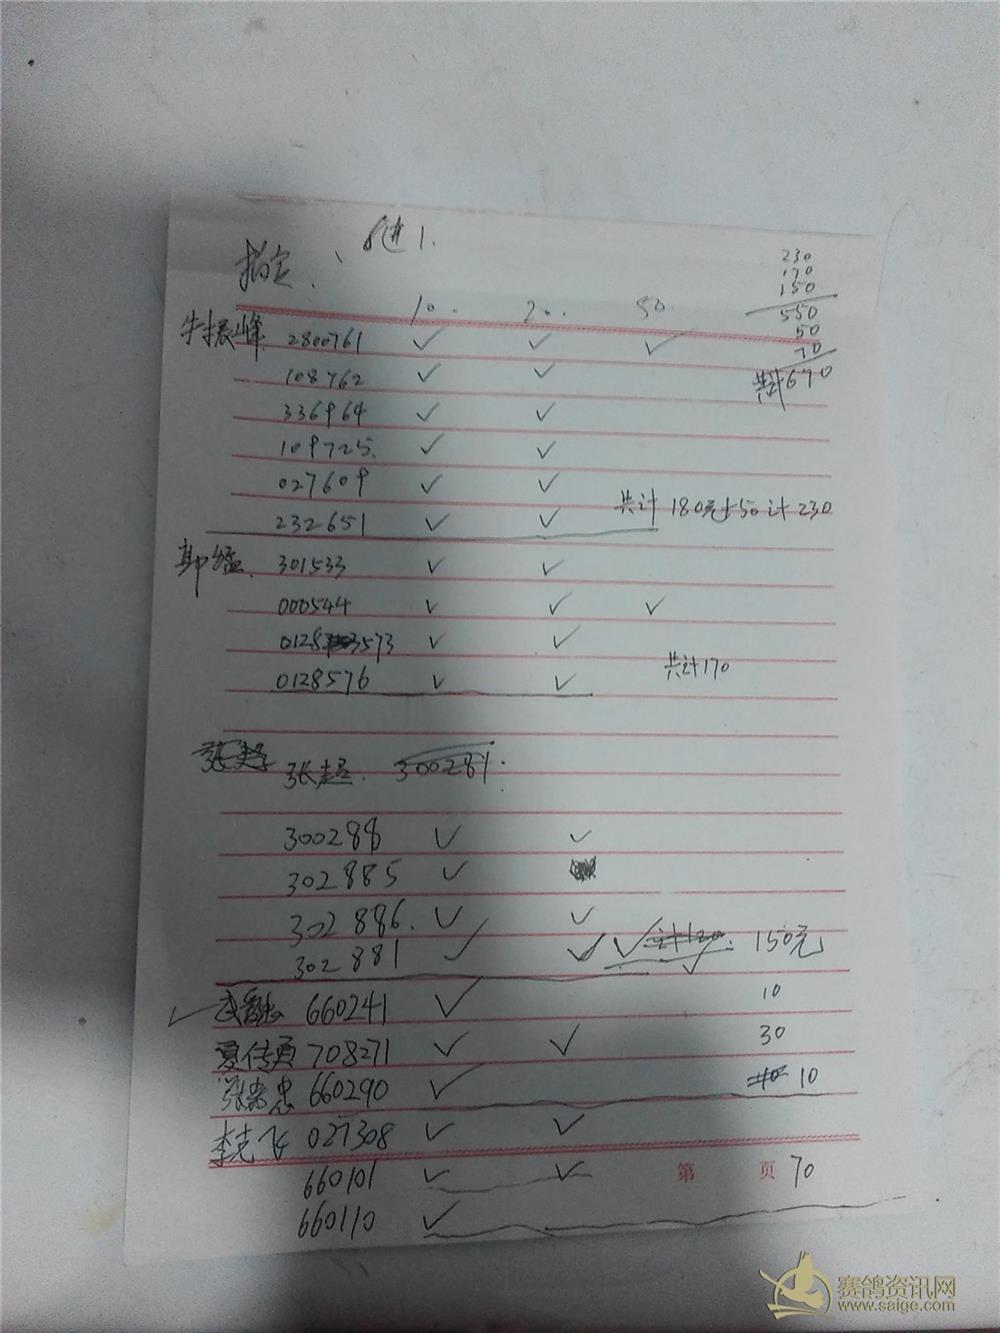 指定、 进1.
230
170
150
10. 20. 50. 550
牛振峰 2800761 ✓ ✓ ✓ 50
70
108762 ✓ ✓ 共计670
336964 ✓ ✓
109725. ✓ ✓
027609 ✓ ✓
232651 ✓ ✓ 共计 180元+50 计 230
301533 ✓ ✓
000544 ✓ ✓ ✓
0128 3573 ✓ ✓
0128576 ✓ ✓ 共计170
张超. 300281.
300288 ✓ ✓
302885 ✓
302886. ✓ ✓
302881 ✓ ✓ ✓ 150元
✓ 660241 ✓ 10
夏传勇 708271 ✓ ✓ 30
660290 ✓ 10
李克飞 027308 ✓ ✓
660101 ✓ ✓ 第 页 70
660110 ✓
赛鸽资讯网
www.saige.com